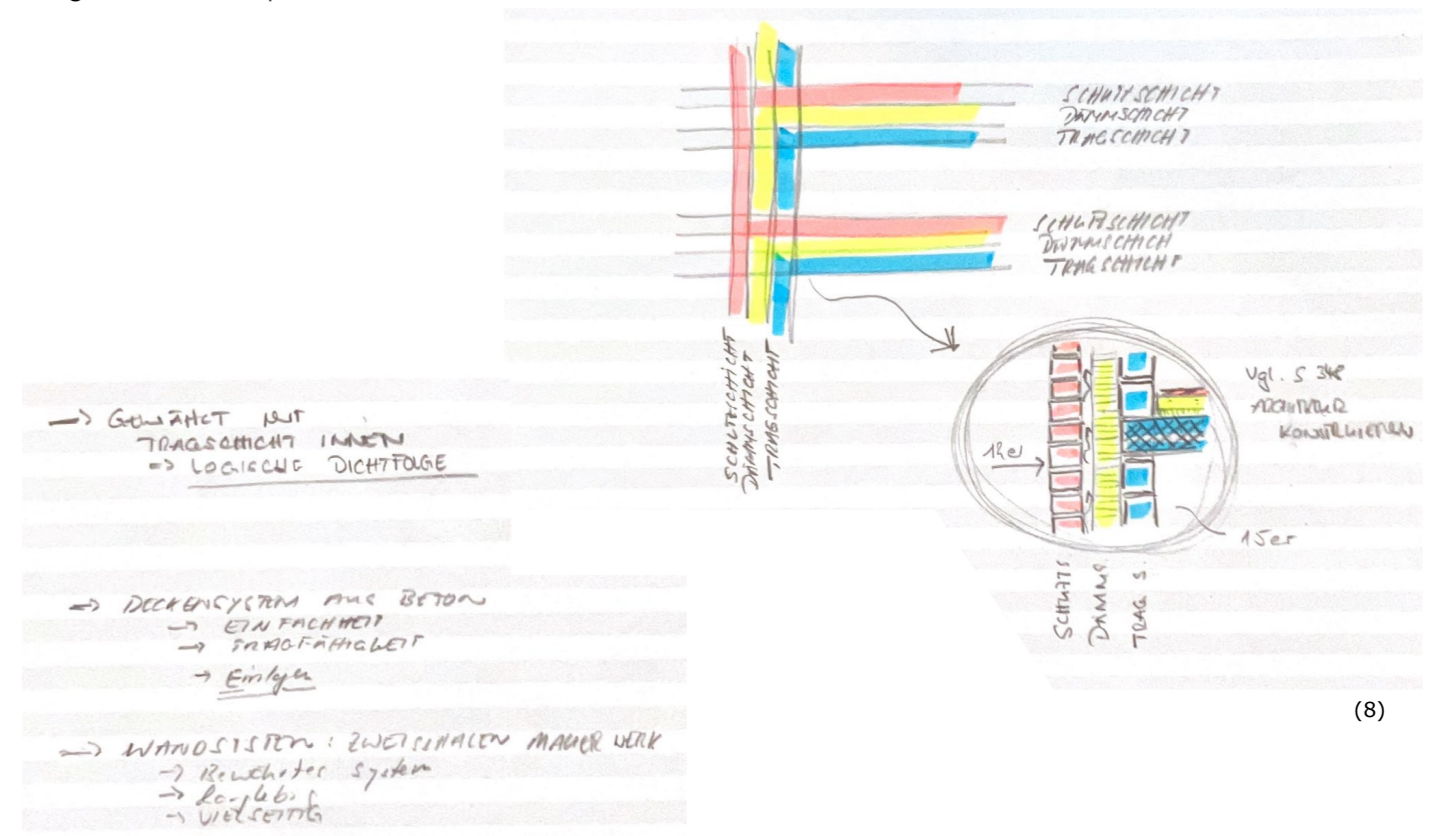 SCHUTZSCHICHT
DÄMMSCHICHT
TRAGSCHICHT
SCHUTZSCHICHT
DÄMMSCHICH
TRAGSCHICHT
SCHUTZSCHICHT
DÄMMSCHICHT
TRAGSCHICHT
Vgl. S
ARCHITEKTUR
KONSTRUIEREN
12er
15er
SCHUTZS.
DÄMMS.
TRAG S.
→ GEWÄHLT MIT
TRAGSCHICHT INNEN
⇒ LOGISCHE DICHTFOLGE
→ DECKENSYSTEM AUS BETON
→ EINFACHHEIT
→ TRAGFÄHIGKEIT
→ Einlagen
→ WANDSYSTEM: ZWEISCHALEN MAUERWERK
→ Bewährtes System
→ langlebig
→ VIELSEITIG
(8)